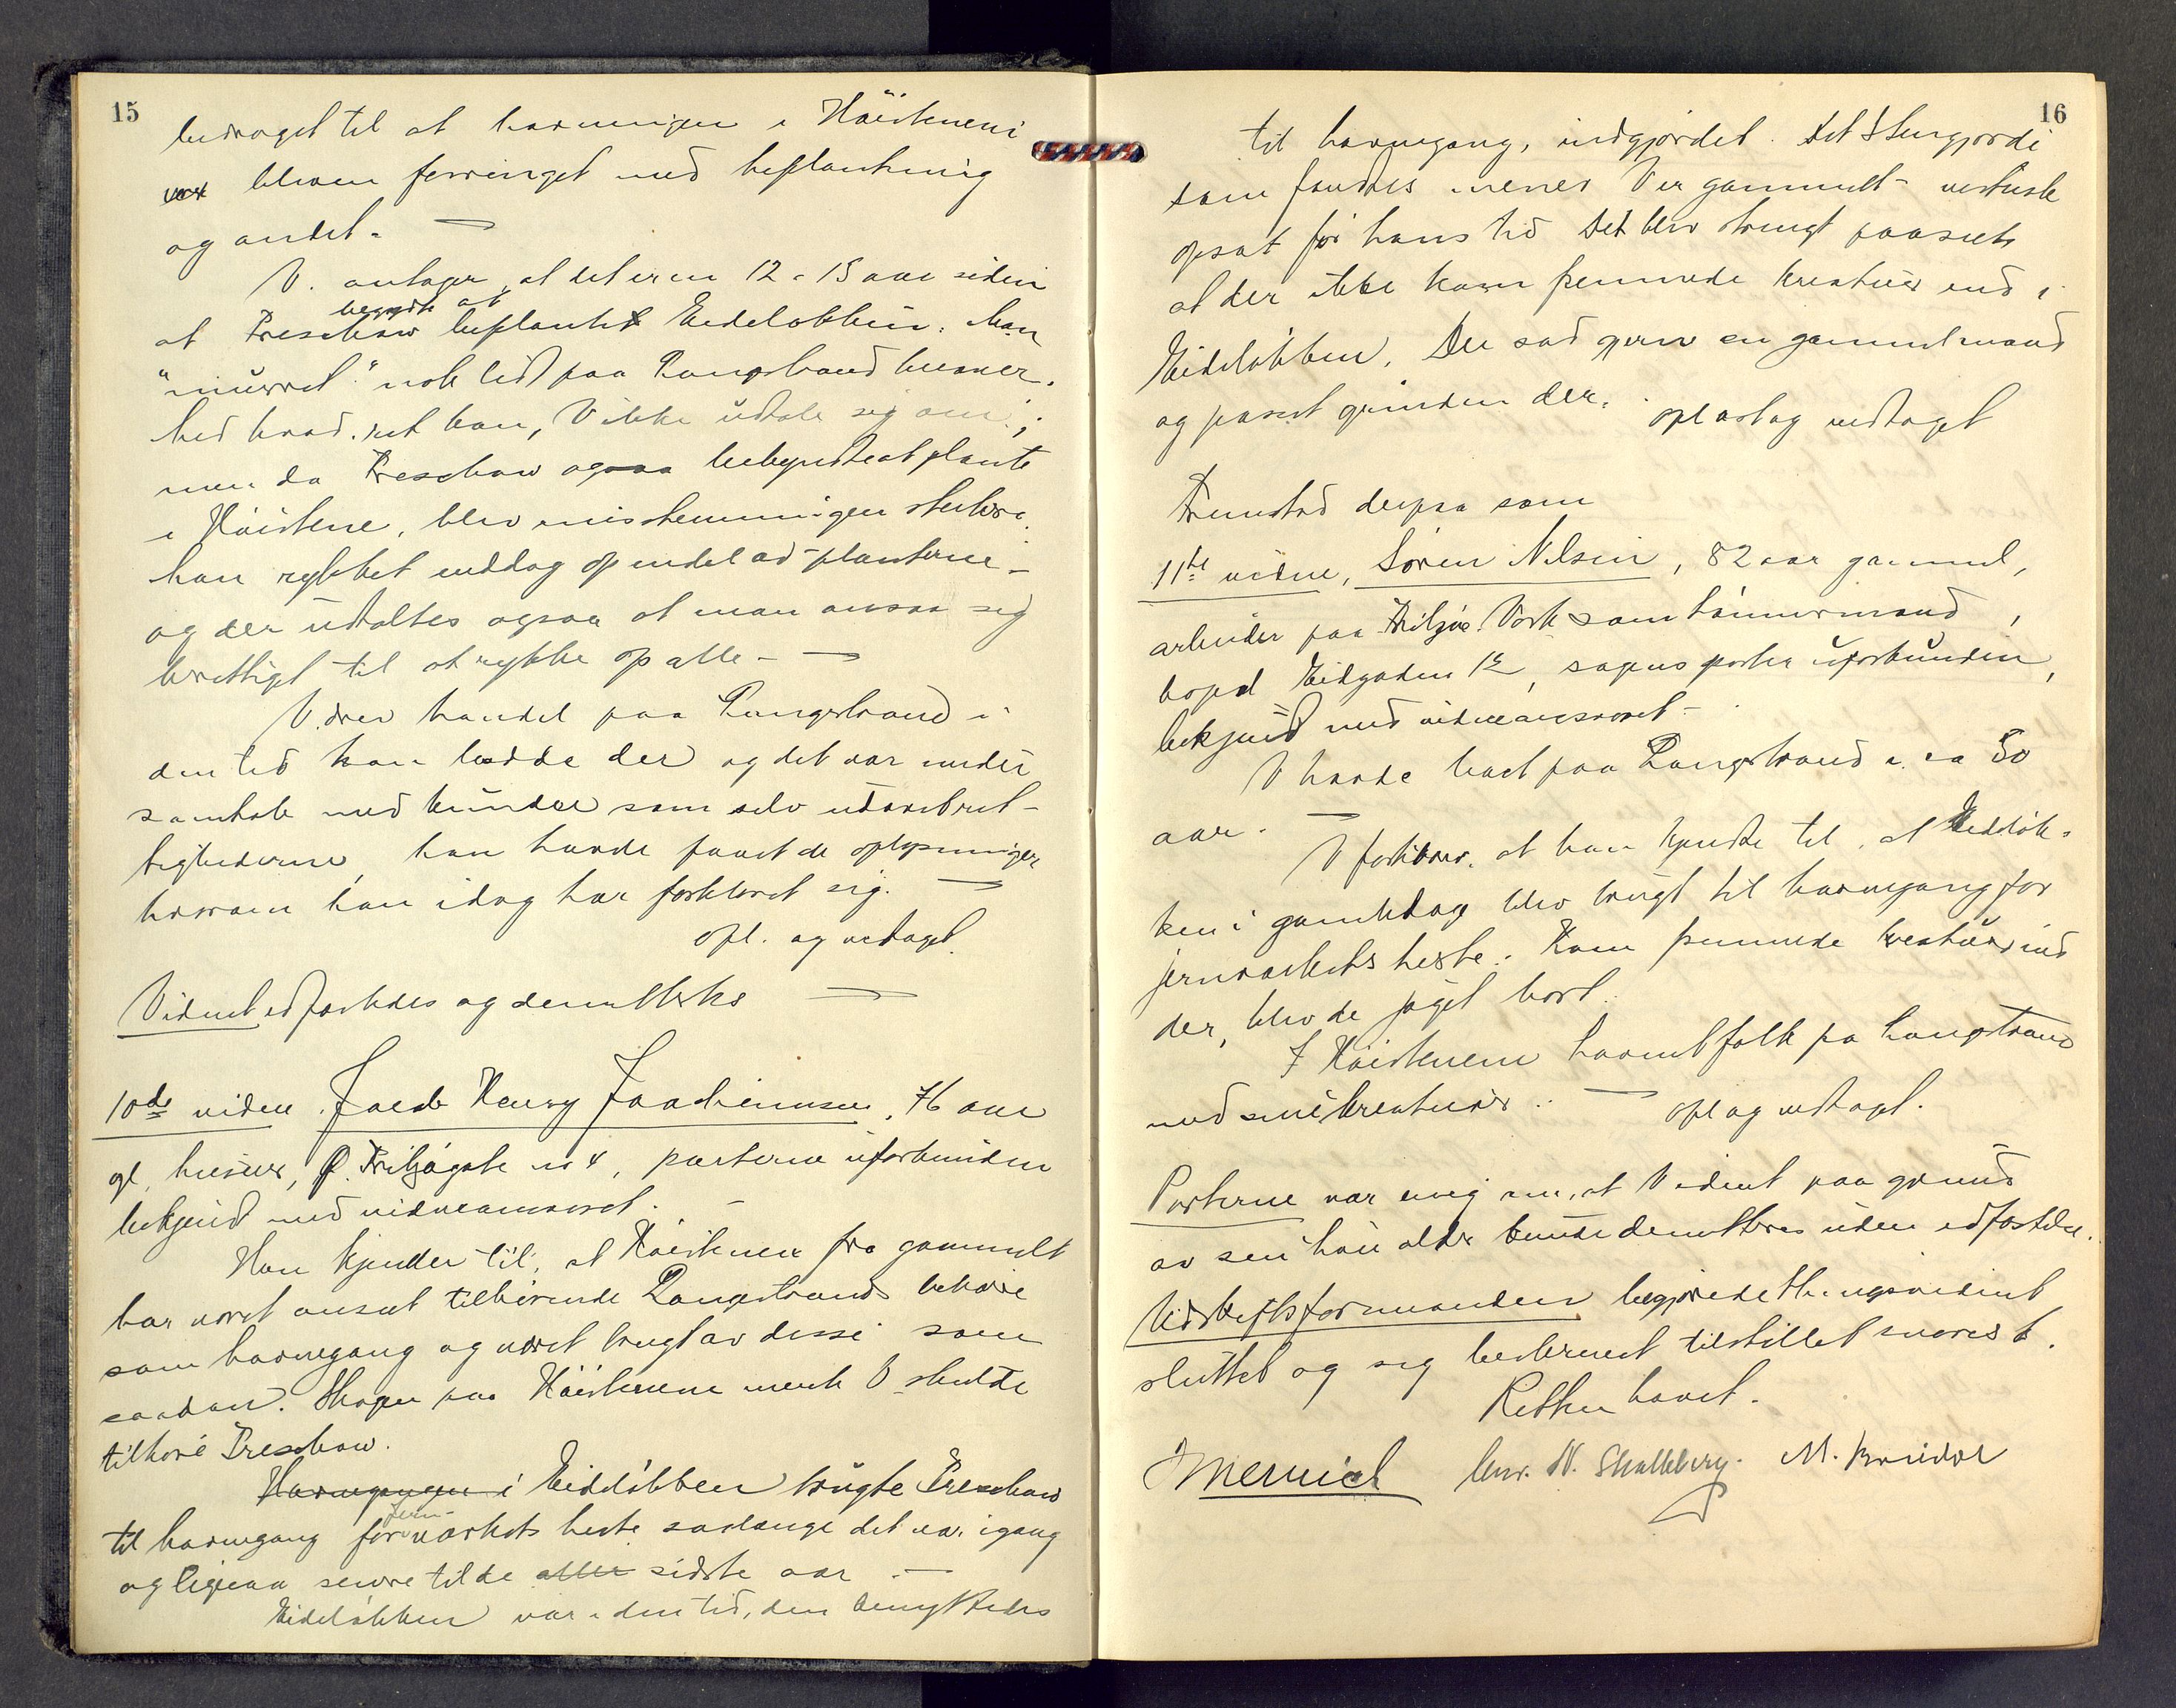 15
bidraget til at havningen i Höistenene
var bleven forringet med beplantning
og andet. —
V. antager, at det er en 12 a 15 aar siden
begyndte at
at Treschow beplante Eideløkken. Man
"murret" nok lidt paa Langestrand herover.
hvad ret han, V ikke udtale sig om;
men da Treschow ogsaa bebyndte at plante
i Höistene, blev misstemningen sterkere
han rykket enddog op endel av planterne –
og der udtaltes ogsaa at man ansaa sig
berettiget til at rykke op alle – —
V. drev handel paa Langestrand i
den tid han bodde der og det var under
samtale med kunder som selv
han havde faaet de oplysninger
hvorom han idag har forklaret sig. —
Opl. og vedtaget.
Vidnet edfæstedes og demitteres —
10de vidne Jacob Henry Joachimsen, 76 aar
gl, huseier, Ø. Fritzøgate no 4, parterne uforbunden
bekjend med vidneansvaret. –
Han kjender til, at Höistenene fra gammelt
har været anset tilhörende Langestrands beboere
som havnegang og været brugt av disse som
saadan. Skogen paa Höistenene mente V skulde
tilhøre Treschow.
Havnegangen i Eideløkken brugte Treschow
jern-
til havnegang for værkets heste saalænge det var igang
og ligesaa senere til de aller sidste aar. —
Eideløkken var i den tid, den benyttedes
16
til havnegang, indgjerdet. Det Stengjerde
som fandtes mener V er gammelt –
opsat før hans tid Det blev strengt paaseet
at der ikke kom fremmede kreaturer ind i
Eideløkken. Der sad gjerne en gammel mand
og passet grinden der. opl og vedtaget
Fremstod derpaa som
11te vidne, Søren Nilsen, 82 aar gammel,
arbeider paa Fritzøe Verk som tømmermand,
bopæl Eidgaden 12, sagens parter uforbunden,
bekjend med vidneansvaret –
V havde boet paa Langestrand i ca 50
aar. —
V forklarer, at han kjendte til, at Eideløk-
ken i gamle dage blev brugt til havnegang for
jernverkets heste. Kom fremmede kreaturer ind
der, blev de jaget bort.
I Höistenene havnet folk paa Langestrand
med smékreaturer. — opl og vedtaget.
Parterne var enig om, at Vidnet paa grund
av sin høie alder kunde demitteres uden edfæstelse.
Udskiftsformanden begjærede thingsvidnet
sluttet og sig beskrevet tilstillet snarest.
Retten hævet.
Chr. N. Skalleberg. M.